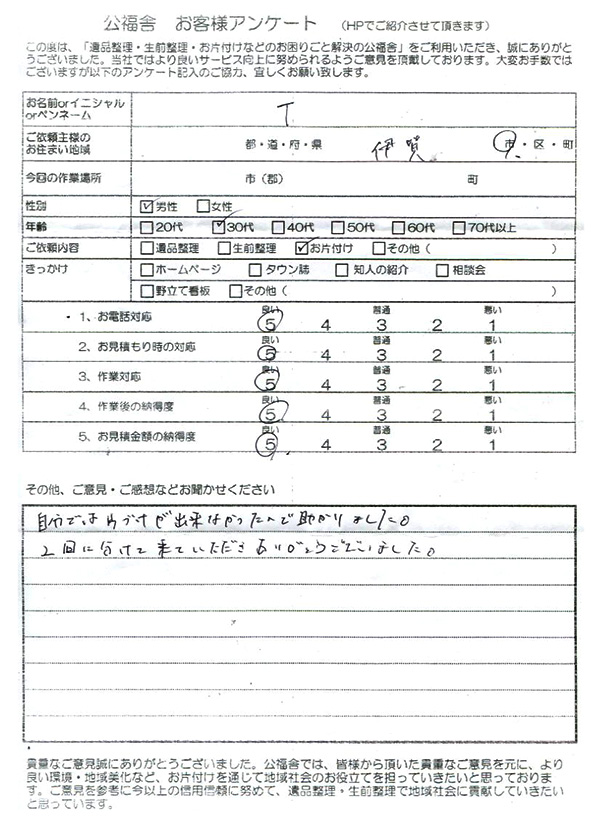 公福舎 お客様アンケート (HPでご紹介させて頂きます)
この度は、「遺品整理・生前整理・お片付けなどのお困りごと解決の公福舎」をご利用いただき、誠にありがと
うございました。当社ではより良いサービス向上に努められるようご意見を頂戴しております。大変お手数では
ございますが以下のアンケート記入のご協力、宜しくお願い致します。
お名前orイニシャル
orペンネーム T
ご依頼主様の
お住まい地域 都・道・府・県 伊賀 市・区・町
今回の作業場所 市(郡) 町
性別 ☑男性 □女性
年齢 □20代 ☑30代 □40代 □50代 □60代 □70代以上
ご依頼内容 □遺品整理 □生前整理 ☑お片付け □その他( )
きっかけ □ホームページ □タウン誌 □知人の紹介 □相談会
□野立て看板 □その他( )
良い 普通 悪い
・1、お電話対応 5 4 3 2 1
良い 普通 悪い
2、お見積もり時の対応 5 4 3 2 1
良い 普通 悪い
3、作業対応 5 4 3 2 1
良い 普通 悪い
4、作業後の納得度 5 4 3 2 1
良い 普通 悪い
5、お見積金額の納得度 5 4 3 2 1
その他、ご意見・ご感想などお聞かせください
自分では片づけが出来なかったので助かりました。
2回に分けて来ていただきありがとうございました。
貴重なご意見誠にありがとうございました。公福舎では、皆様から頂いた貴重なご意見を元に、より
良い環境・地域美化など、お片付けを通じて地域社会のお役立てを担っていきたいと思っておりま
す。ご意見を参考に今以上の信用信頼に努めて、遺品整理・生前整理で地域社会に貢献していきたい
と思っています。